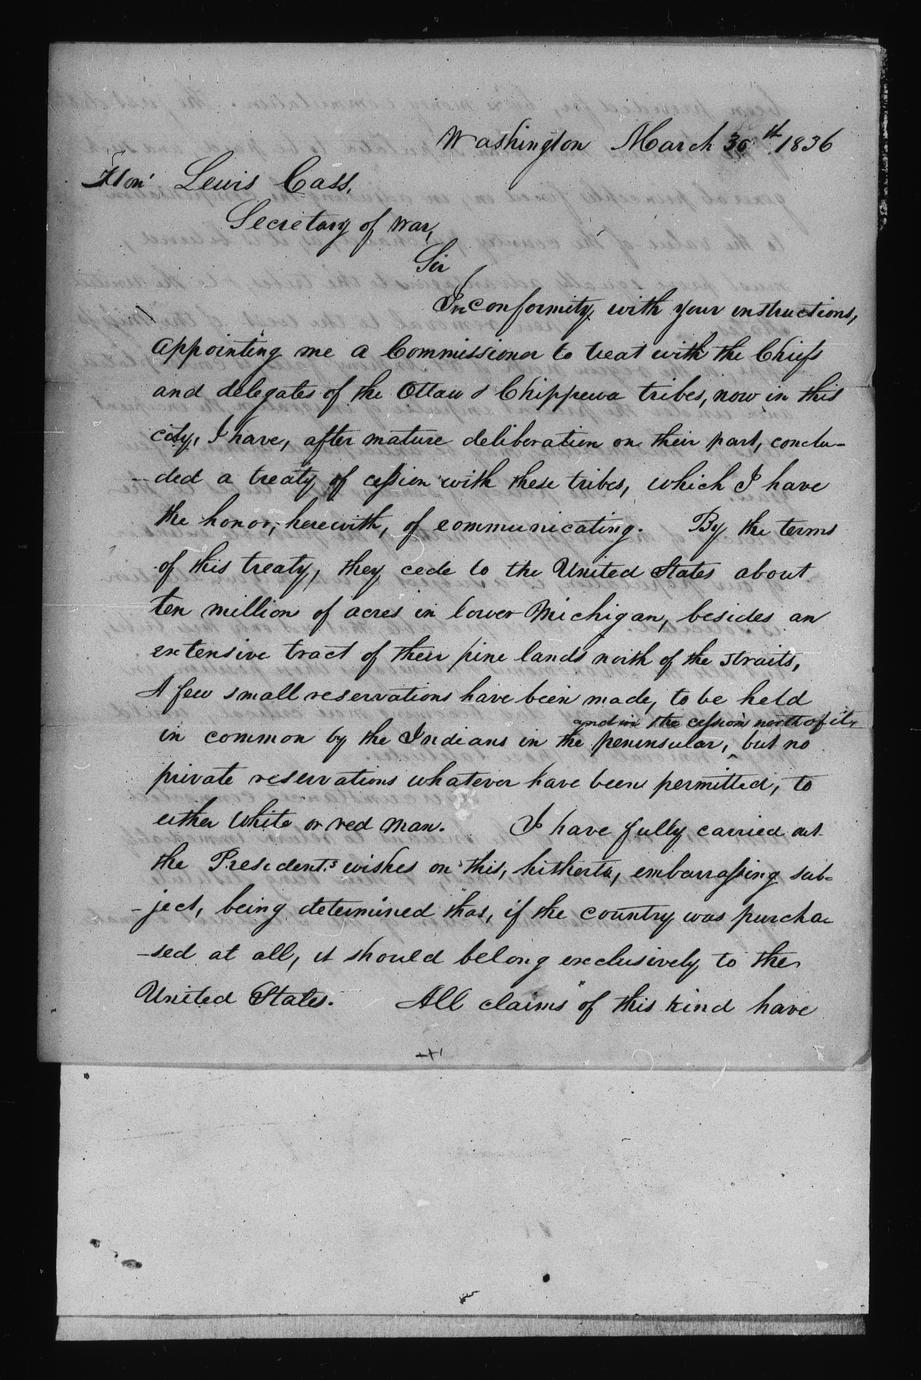 Washington March 30th. 1836
Hon' Lewis Cass,
Secretary of War,
Sir
In conformity, with your instructions,
appointing me a Commissioner to treat with the Chiefs
and delegates of the Ottaw & Chippewa tribes, now in this
city, I have, after mature deliberation on their part, conclu-
-ded a treaty of cession with these tribes, which I have
the honor, herewith, of communicating. By the terms
of this treaty, they cede to the United States about
ten million of acres in lower Michigan, besides an
extensive tract of their pine lands north of the straits,
A few small reservations have been made, to be held
and in the cession north of it,
in common by the Indians in the peninsular, ^ but no
private reservations whatever have been permitted, to
either white or red man. I have fully carried out
the President's wishes on this, hitherto, embarrassing sub-
-ject, being determined that, if the country was purcha
-sed at all, it should belong exclusively to the
United States. All claims of this kind have